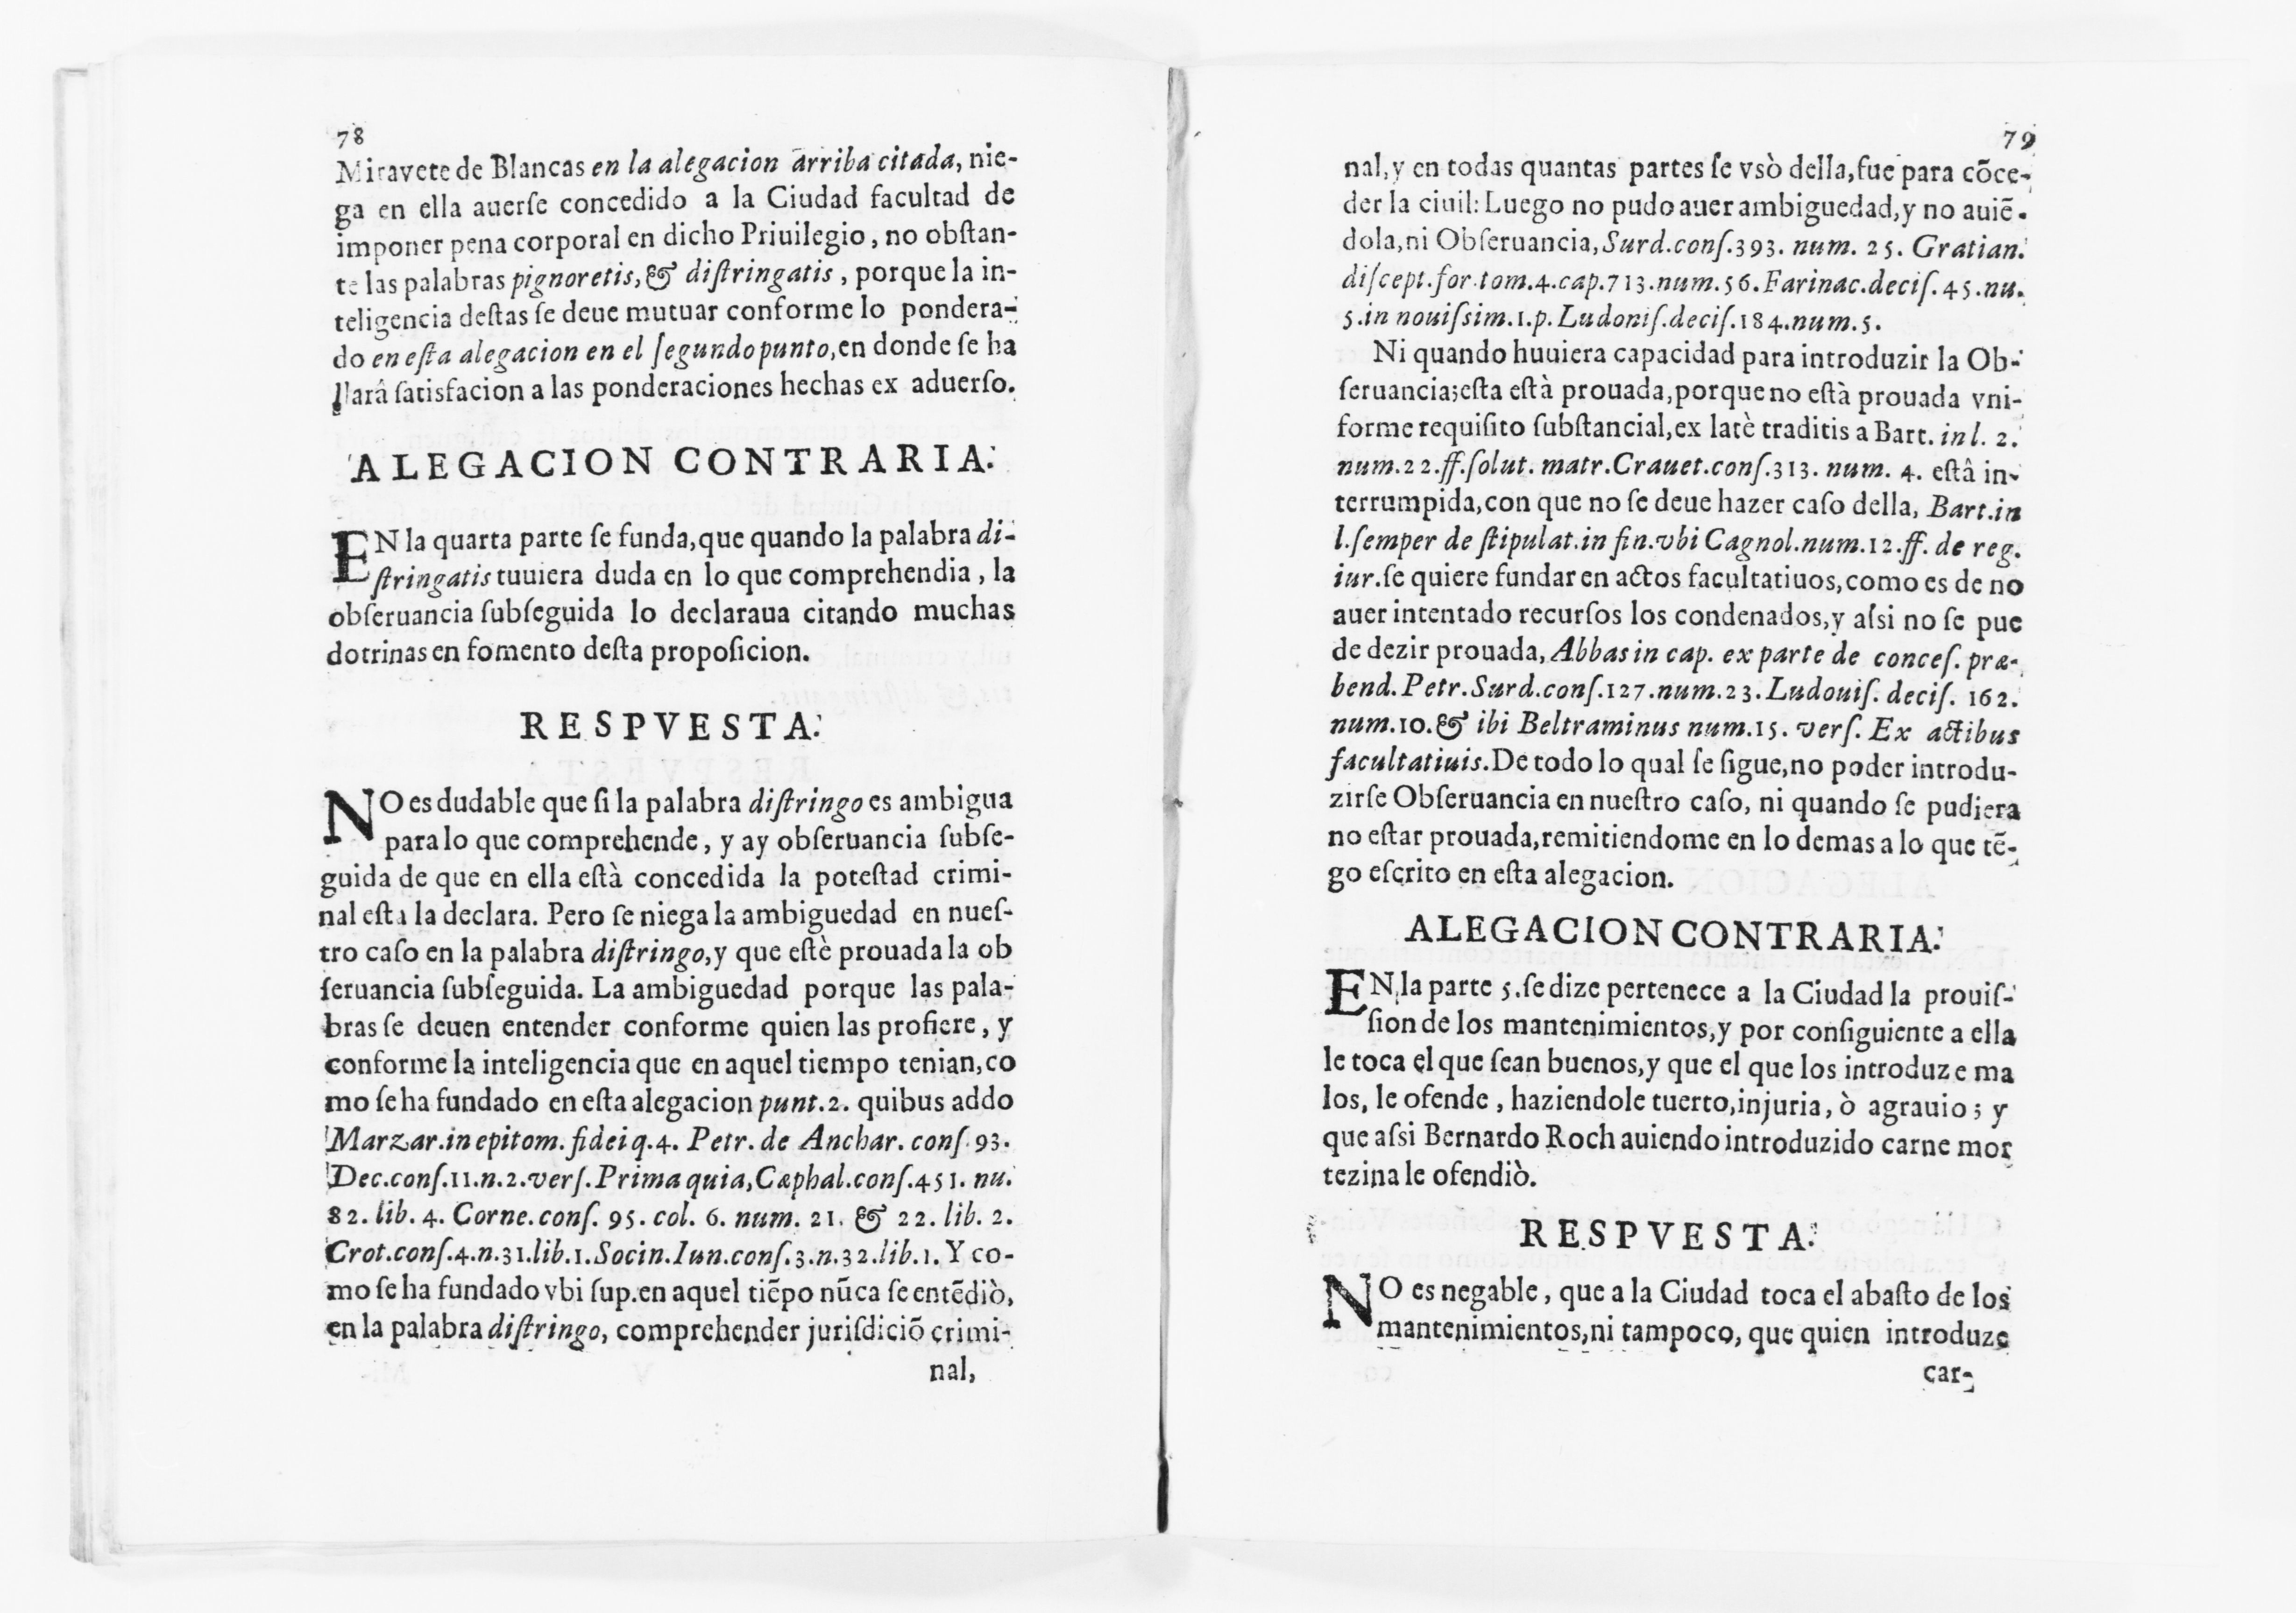 78
Miravete de Blancas en la alegacion arriba citada, nie-
ga en ella auerſe concedido a la Ciudad facultad de
imponer pena corporal en dicho Priuilegio, no obſtan-
te las palabras pignoretis, & diſtringatis, porque la in-
teligencia deſtas ſe deue mutuar conforme lo pondera-
do en eſta alegacion en el ſegundo punto, en donde ſe ha
llarâ ſatisfacion a las ponderaciones hechas ex aduerſo.
ALEGACION CONTRARIA.
EN la quarta parte ſe funda, que quando la palabra di-
ſtringatis tuuiera duda en lo que comprehendia, la
obſeruancia ſubſeguida lo declaraua citando muchas
dotrinas en fomento deſta propoſicion.
RESPVESTA.
NO es dudable que ſi la palabra diſtringo es ambigua
para lo que comprehende, y ay obſeruancia ſubſe-
guida de que en ella eſtà concedida la poteſtad crimi-
nal eſta la declara. Pero ſe niega la ambiguedad en nueſ-
tro caſo en la palabra diſtringo, y que eſtè prouada la ob
ſeruancia ſubſeguida. La ambiguedad porque las pala-
bras ſe deuen entender conforme quien las profiere, y
conforme la inteligencia que en aquel tiempo tenian, co
mo ſe ha fundado en eſta alegacion punt. 2. quibus addo
Marzar. in epitom. fidei q. 4. Petr. de Anchar. conſ. 93.
Dec. conſ. 11. n. 2. verſ. Prima quia, Cæphal. conſ. 451. nu.
82. lib. 4. Corne. conſ. 95. col. 6. num. 21. & 22. lib. 2.
Crot. conſ. 4. n. 31 lib. 1. Socin. Iun. conſ. 3. n. 32. lib. 1. Y co-
mo ſe ha fundado vbi ſup. en aquel tiẽpo nũca ſe entẽdiò,
en la palabra diſtringo, comprehender juriſdiciõ crimi-
nal,
79
nal, y en todas quantas partes ſe vsò della, fue para cõce-
der la ciuil: Luego no pudo auer ambiguedad, y no auiẽ-
dola, ni Obſeruancia, Surd. conſ. 393. num. 25. Gratian.
diſcept. for. tom. 4. cap. 713. num. 56. Farinac. deciſ. 45. nu.
5. in nouiſsim. 1. p. Ludoniſ. deciſ. 184. num. 5.
Ni quando huuiera capacidad para introduzir la Ob-
ſeruancia; eſta eſtà prouada, porque no eſtà prouada vni-
forme requiſito ſubſtancial, ex latè traditis a Bart. in l. 2.
num. 22. ff. ſolut. matr. Crauet. conſ. 313. num. 4. eſtâ in-
terrumpida, con que no ſe deue hazer caſo della, Bart. in
l. ſemper de ſtipulat. in fin. vbi Cagnol. num. 12. ff. de reg.
iur. ſe quiere fundar en actos facultatiuos, como es de no
auer intentado recurſos los condenados, y aſsi no ſe pue
de dezir prouada, Abbas in cap. ex parte de conceſ. præ-
bend. Petr. Surd. conſ. 127. num. 23. Ludouiſ. deciſ. 162.
num. 10. & ibi Beltraminus num. 15. verſ. Ex actibus
facultatiuis. De todo lo qual ſe ſigue, no poder introdu-
zirſe Obſeruancia en nueſtro caſo, ni quando ſe pudiera
no eſtar prouada, remitiendome en lo demas a lo que tẽ-
go eſcrito en eſta alegacion.
ALEGACION CONTRARIA.
EN la parte 5. ſe dize pertenece a la Ciudad la prouiſ-
ſion de los mantenimientos, y por conſiguiente a ella
le toca el que ſean buenos, y que el que los introduze ma
los, le ofende, haziendole tuerto, injuria, ò agrauio; y
que aſsi Bernardo Roch auiendo introduzido carne mor
tezina le ofendiò.
RESPVESTA.
NO es negable, que a la Ciudad toca el abaſto de los
mantenimientos, ni tampoco, que quien introduze
car-